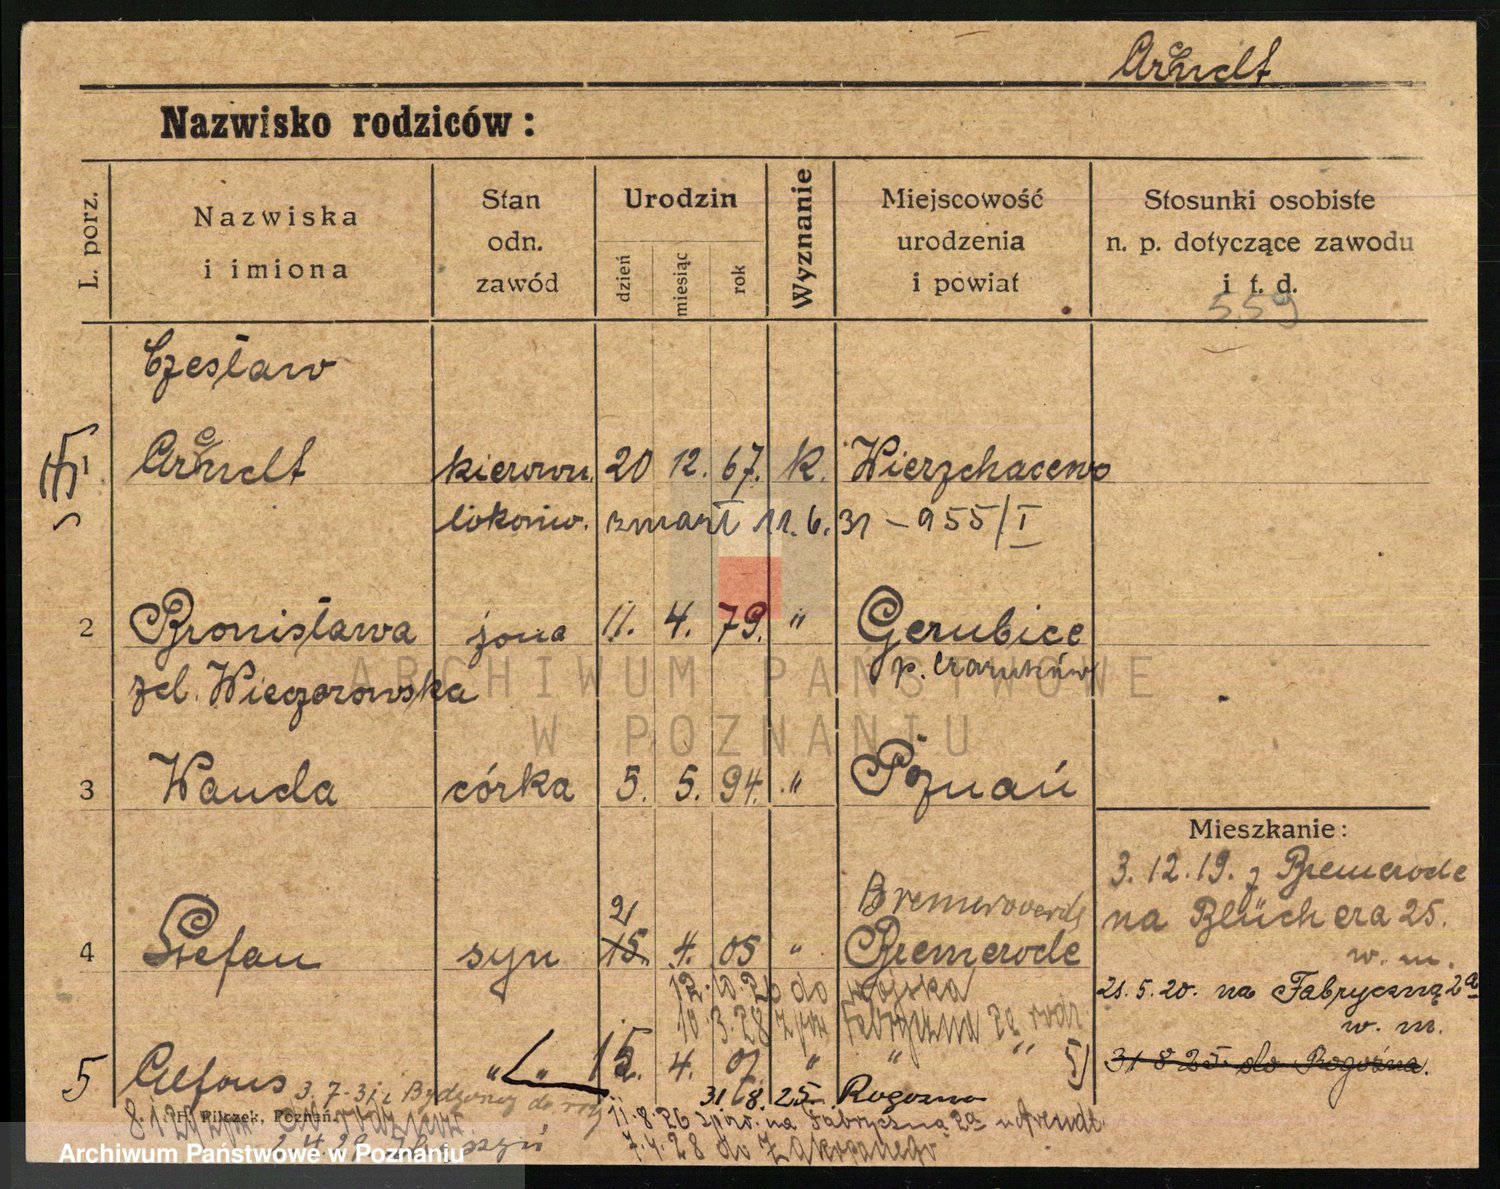 Arendt
Nazwisko rodziców:
L. porz.
Nazwiska
i imiona
Stan
odn.
zawód
Urodzin
dzień
miesiąc
rok
Wyznanie
Miejscowość
urodzenia
i powiat
Stosunki osobiste
n. p. dotyczące zawodu
i t. d.
559
Czesław
1 Arendt kierown. 20 12. 67. k. Wierzchacewo
lokomw. zmarł 11. 6. 31 – 955/I
2 Bronisława żona 11. 4. 79. " Gerubice
zd. Wieczorowska p. Czarnków
3 Wanda córka 5. 5. 94. " Poznań
Mieszkanie:
3. 12. 19. z Bremerode
na Blüchera 25.
w. m.
21. 5. 20. na Fabryczną 2a
w. m.
31 8 25 do Rogoźna.
Bremervoerde
21
4 Stefan syn 15. 4. 05 " Bremerode
12.10.26 do wojska
10.3.28 z Fabryczna 2a
5 Alfons " " 15. 4. 07 " " " 5)
31 8. 25. Rogozno
3.7.31 z Bydgoszczy do
11.8.26 na Fabryczną 2a u Arendt
7.4.28 do Zakopanego
H. Pilczek, Poznań.
ARCHIWUM PAŃSTWOWE
W POZNANIU
Archiwum Państwowe w Poznaniu